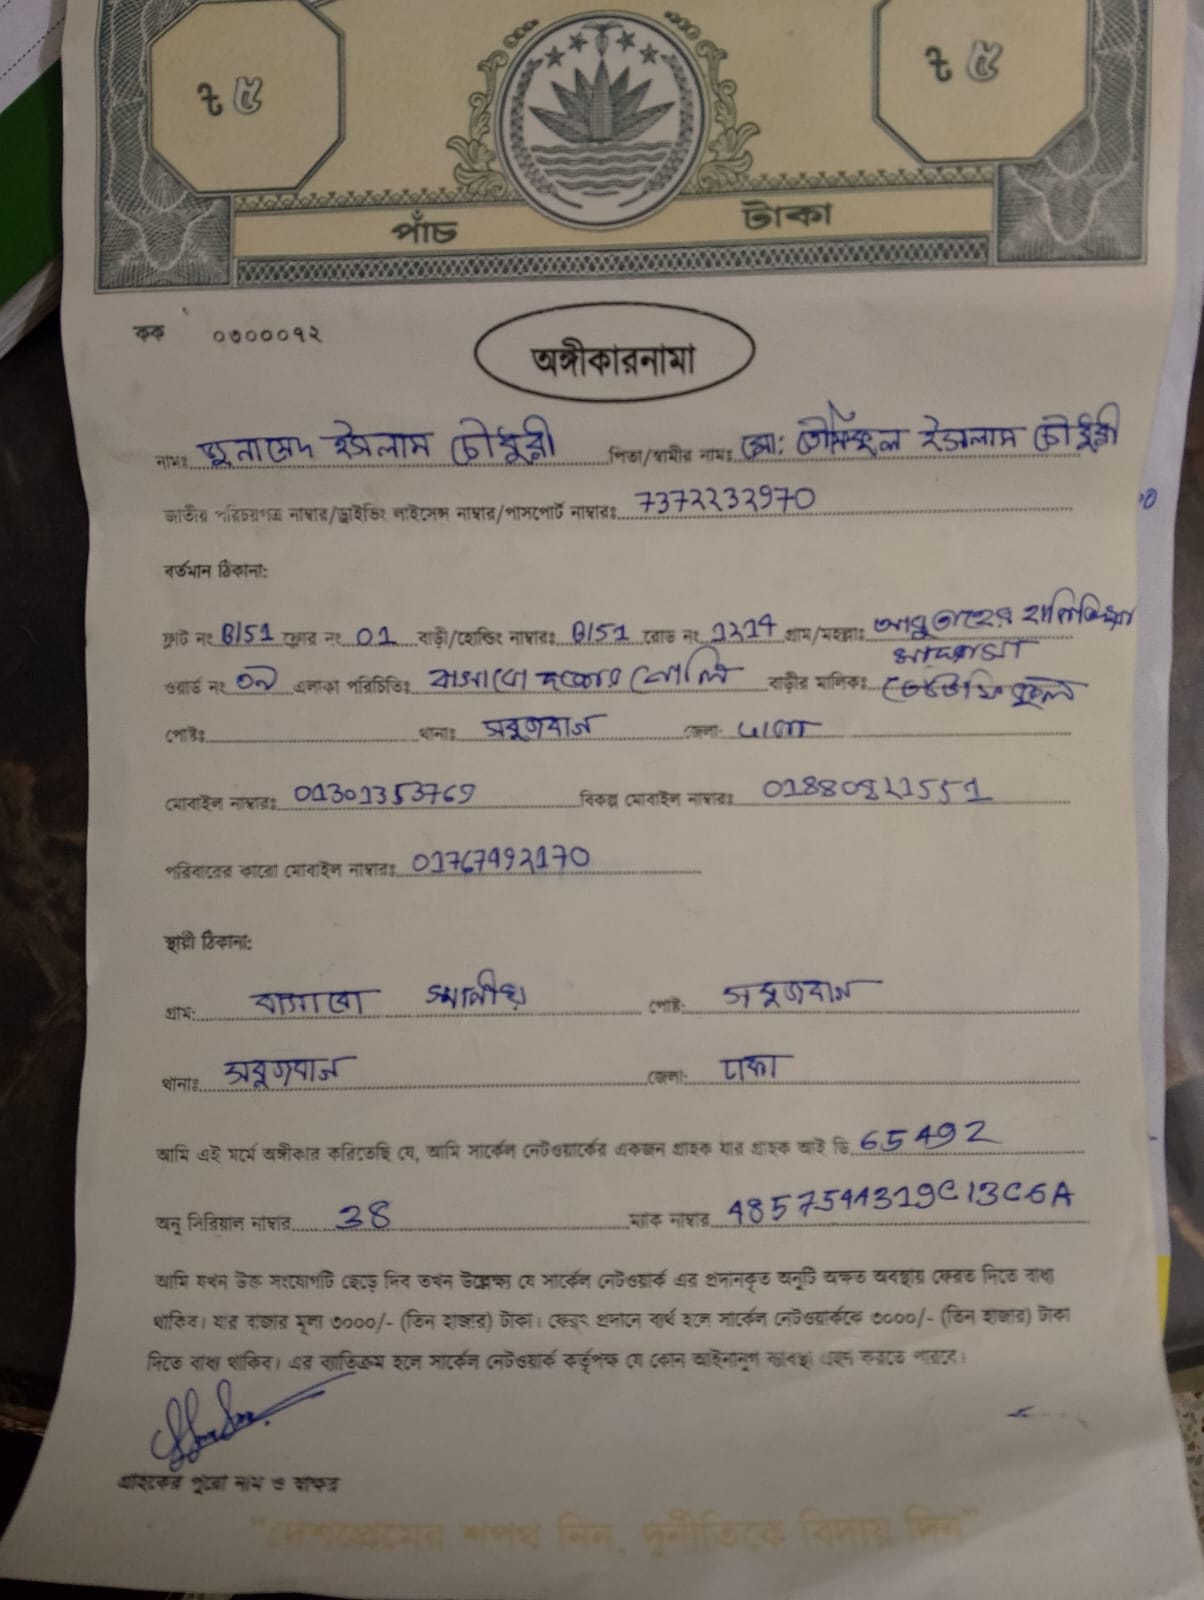 ৳ ৫ ৳ ৫
পাঁচ টাকা
কক ০৩০০০৭২
অঙ্গীকারনামা
নামঃ জুনায়েদ ইসলাম চৌধুরী পিতা/স্বামীর নামঃ মো: তৌফিকুল ইসলাম চৌধুরী
জাতীয় পরিচয়পত্র নাম্বার/ড্রাইভিং লাইসেন্স নাম্বার/পাসপোর্ট নাম্বারঃ 7372232970
বর্তমান ঠিকানা:
ফ্লাট নং B/51 ফ্লোর নং 01 বাড়ী/হোল্ডিং নাম্বারঃ B/51 রোড নং গ্রাম/মহল্লাঃ
মাদ্রাসা
ওয়ার্ড নং এলাকা পরিচিতিঃ বাসাবো বাড়ীর মালিকঃ
পোষ্টঃ থানাঃ সবুজবাগ জেলা: ঢাকা
মোবাইল নাম্বারঃ 01301353769 বিকল্প মোবাইল নাম্বারঃ 01880821551
পরিবারের কারো মোবাইল নাম্বারঃ 01767492170
স্থায়ী ঠিকানা:
গ্রাম: বাসাবো স্থানীয় পোষ্ট: সবুজবাগ
থানাঃ সবুজবাগ জেলা: ঢাকা
আমি এই মর্মে অঙ্গীকার করিতেছি যে, আমি সার্কেল নেটওয়ার্কের একজন গ্রাহক যার গ্রাহক আই ডি 65492
অনু সিরিয়াল নাম্বার 38 ম্যাক নাম্বার 4857544319C13C6A
আমি যখন উক্ত সংযোগটি ছেড়ে দিব তখন উল্লেক্ষ্য যে সার্কেল নেটওয়ার্ক এর প্রদানকৃত অনুটি অক্ষত অবস্থায় ফেরত দিতে বাধ্য
থাকিব। যার বাজার মূল্য ৩০০০/- (তিন হাজার) টাকা। ফেরৎ প্রদানে ব্যর্থ হলে সার্কেল নেটওয়ার্ককে ৩০০০/- (তিন হাজার) টাকা
দিতে বাধ্য থাকিব। এর ব্যতিক্রম হলে সার্কেল নেটওয়ার্ক কর্তৃপক্ষ যে কোন আইনানুগ ব্যবস্থা গ্রহন করতে পারবে।
গ্রাহকের পুরো নাম ও স্বাক্ষর
"দেশপ্রেমের শপথ নিন, দুর্নীতিকে বিদায় দিন"